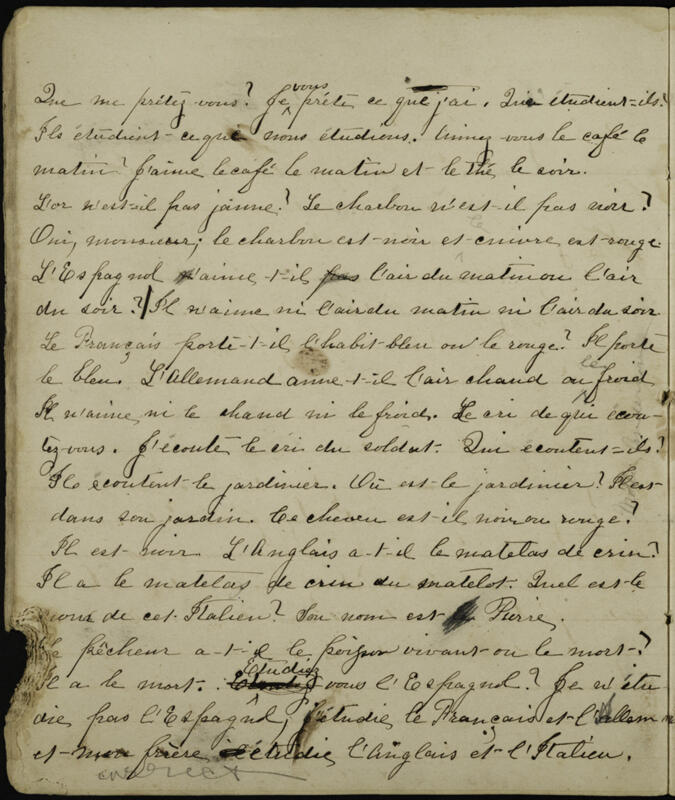 Que me prêtez vous? Je vous prête ce que j'ai. Qui étudient-ils?
Ils étudient ce que nous étudions. Aimez vous le café le
matin? J'aime le café le matin et le thé le soir.
L'or n'est-il pas jaune? Le charbon n'est-il pas noir?
Oui, monsieur; le charbon est noir et cuivre est rouge.
L'Espagnol n'aime-t-il pas l'air du matin ou l'air
du soir? Il n'aime ni l'air du matin ni l'air du soir
Le Français porte-t-il l'habit bleu ou le rouge? Il porte
le bleu. L'Allemand aime-t-il l'air chaud ou le froid
Il n'aime ni le chaud ni le froid. Le cri de qui ecou-
tez-vous. J'écoute le cri du soldat. Qui ecoutent-ils?
Ils ecoutent le jardinier. Où est le jardinier? Il est
dans son jardin. Ce cheveu est-il noir ou rouge?
Il est noir. L'Anglais a-t-il le matelas de crin?
Il a le matelas de crin du matelot. Quel est le
nom de cet Italien? Son nom est Pierre.
Le pêcheur a-t-il le poisson vivant ou le mort?
Il a le mort. Etudiez vous l'Espagnol? Je n'étu-
die pas l'Espagnol, j'étudie le Français et l'allem
et mon frère étudie l'Anglais et l'Italien.
correct